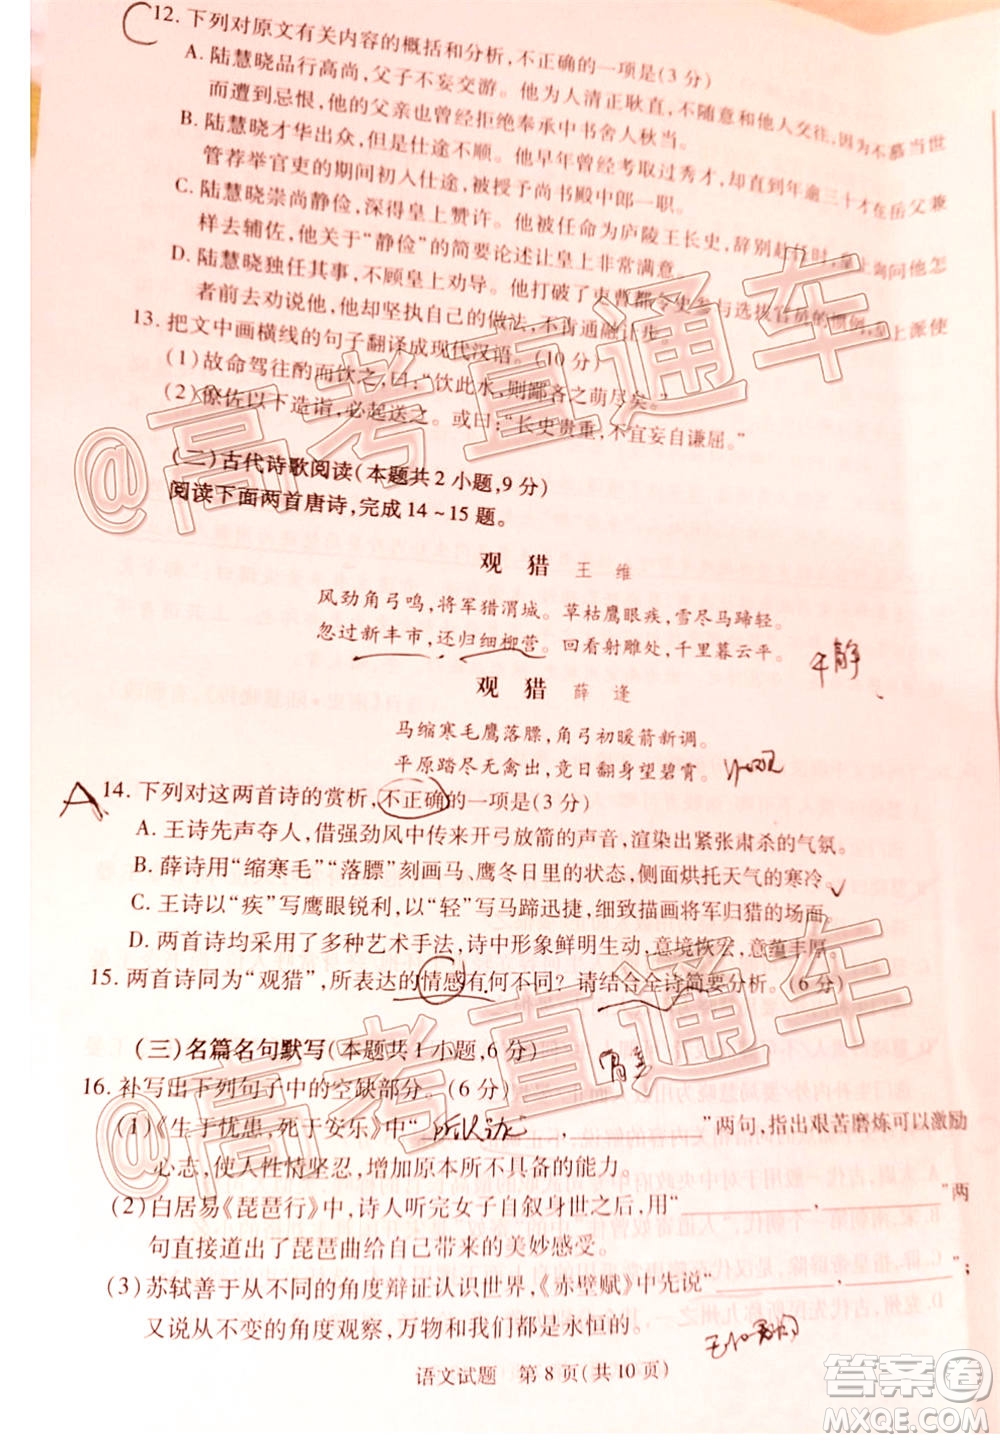 C
12. 下列对原文有关内容的概括和分析,不正确的一项是(3 分)
A. 陆慧晓品行高尚,父子不妄交游。他为人清正耿直,不随意和他人交往,因为不慕当世
而遭到忌恨,他的父亲也曾经拒绝奉承中书舍人秋当。
B. 陆慧晓才华出众,但是仕途不顺。他早年曾经考取过秀才,却直到年逾三十才在岳父兼
管荐举官吏的期间初入仕途,被授予尚书殿中郎一职。
C. 陆慧晓崇尚静俭,深得皇上赞许。他曾经作为庐陵王长史,辞别赴任时,皇上询问他怎
样去辅佐,他关于“静俭”的简要论述让皇上非常满意。
D. 陆慧晓独任其事,不顾皇上劝导。他打破了吏曹都令史参与选拔官员的惯例,皇上派使
者前去劝说他,他却坚执自己的做法,不肯通融让步。
13. 把文中画横线的句子翻译成现代汉语。(10 分)
(1)故命驾往酌而饮之,曰:“饮此水,则鄙吝之萌尽矣。”
(2)僚佐以下造诣,必起送之。或曰:“长史贵重,不宜妄自谦屈。”
(二)古代诗歌阅读(本题共 2 小题,9 分)
阅读下面两首唐诗,完成 14~15 题。
观 猎 王 维
风劲角弓鸣,将军猎渭城。草枯鹰眼疾,雪尽马蹄轻。
忽过新丰市,还归细柳营。回看射雕处,千里暮云平。
观 猎 薛 逢
马缩寒毛鹰落膘,角弓初暖箭新调。
平原踏尽无禽出,竟日翻身望碧霄。
A.
14. 下列对这两首诗的赏析,不正确的一项是(3 分)
A. 王诗先声夺人,借强劲风中传来开弓放箭的声音,渲染出紧张肃杀的气氛。
B. 薛诗用“缩寒毛”“落膘”刻画马、鹰冬日里的状态,侧面烘托天气的寒冷。
C. 王诗以“疾”写鹰眼锐利,以“轻”写马蹄迅捷,细致描画将军归猎的场面。
D. 两首诗均采用了多种艺术手法,诗中形象鲜明生动,意境恢宏,意蕴丰厚。
15. 两首诗同为“观猎”,所表达的情感有何不同?请结合全诗简要分析。(6 分)
(三)名篇名句默写(本题共 1 小题,6 分)
16. 补写出下列句子中的空缺部分。(6 分)
(1)《生于忧患,死于安乐》中“ , ”两句,指出艰苦磨炼可以激励
心志,使人性情坚忍,增加原本所不具备的能力。
(2)白居易《琵琶行》中,诗人听完女子自叙身世之后,用“ , ”两
句直接道出了琵琶曲给自己带来的美妙感受。
(3)苏轼善于从不同的角度辩证认识世界,《赤壁赋》中先说“ , ”;
又说从不变的角度观察,万物和我们都是永恒的。
语文试题 第 8 页(共 10 页)
@高考直通车
@高考直通车
答案卷
MXQE.COM